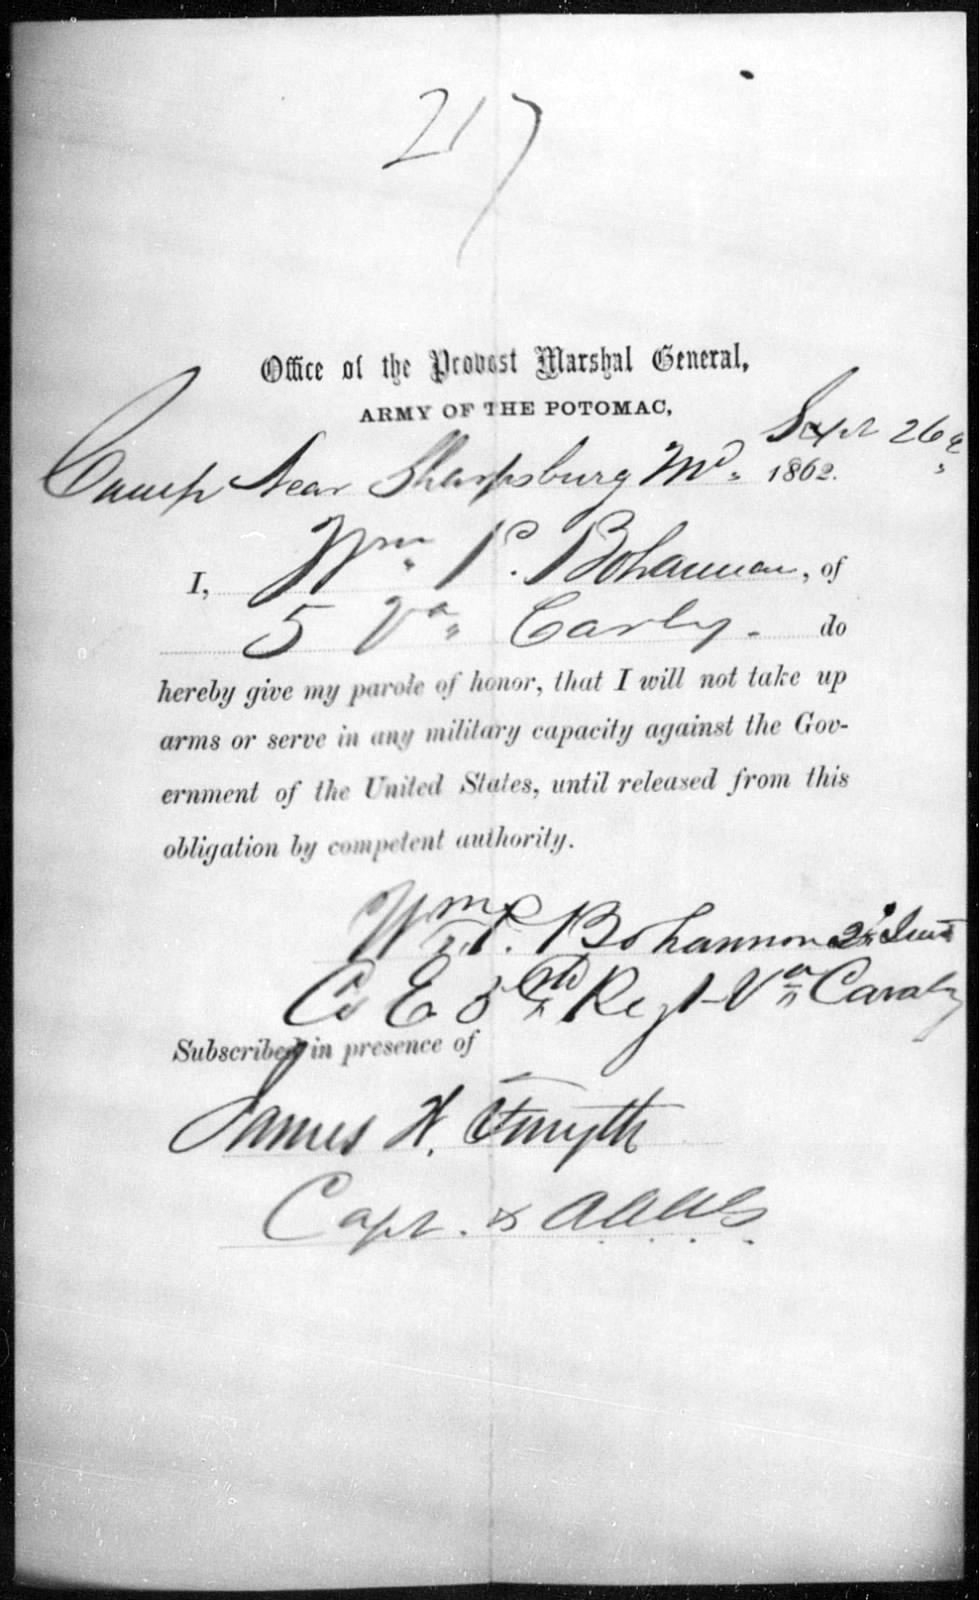 217
Office of the Provost Marshal General,
ARMY OF THE POTOMAC,
Camp Near Sharpsburg Md. Sept 26 1862.
I, Wm. P. Bohannan, of
5 Va. Cavly. do
hereby give my parole of honor, that I will not take up
arms or serve in any military capacity against the Gov-
ernment of the United States, until released from this
obligation by competent authority.
Wm. P. Bohannon 2d Lieut
Co E 5th Regt Va Cavalry
Subscribed in presence of
James W. Forsyth
Capt. & A.A.A.G.